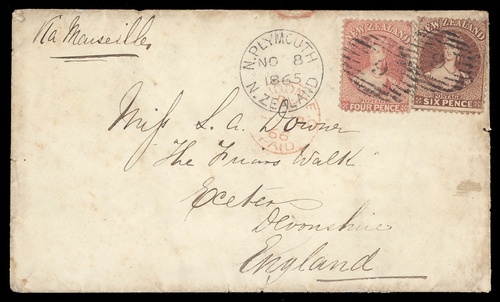 Via Marseilles
N. PLYMOUTH
NO 8
1865
N. ZEALAND
NEW ZEALAND
POSTAGE
FOUR PENCE
NEW ZEALAND
POSTAGE
SIX PENCE
PAID
Miss L. A. Downer
The Friars Walk
Exeter
Devonshire
England